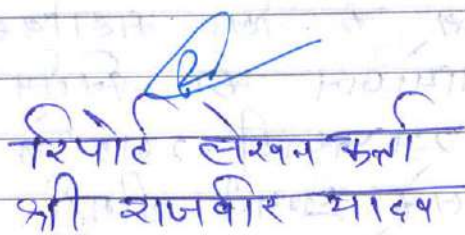 रिपोर्ट लेखन कर्ता
श्री राजवीर यादव